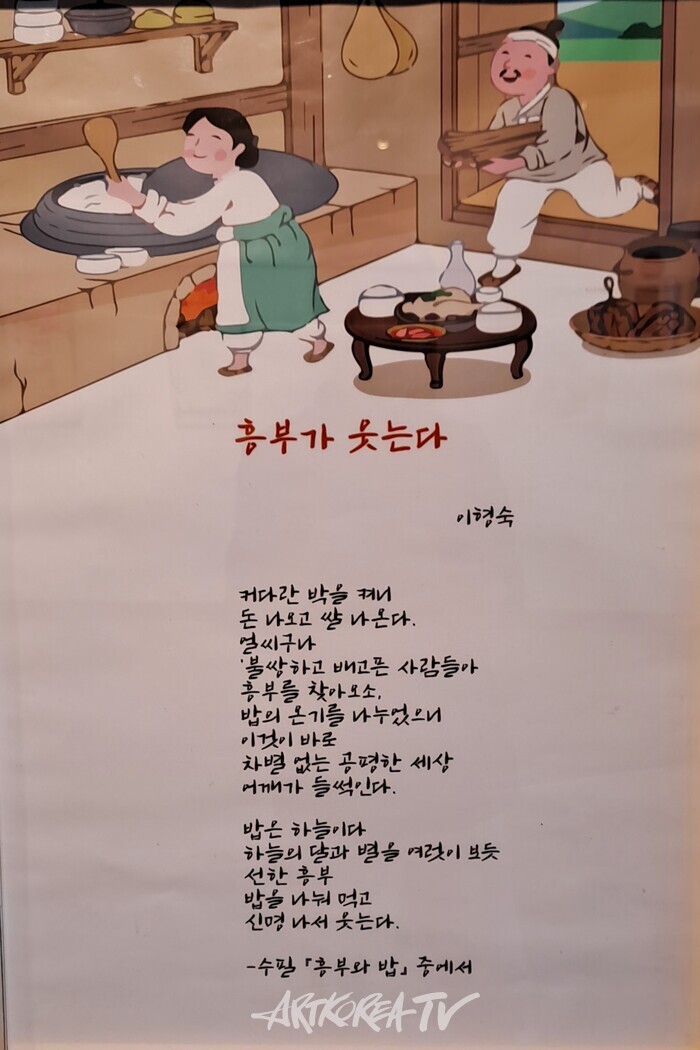 흥부가 웃는다
이형숙
커다란 박을 켜니
돈 나오고 쌀 나온다.
얼씨구나
'불쌍하고 배고픈 사람들아
흥부를 찾아오소.
밥의 온기를 나누었으니
이것이 바로
차별 없는 공평한 세상
어깨가 들썩인다.
밥은 하늘이다
하늘의 달과 별을 여럿이 보듯
선한 흥부
밥을 나눠 먹고
신명 나서 웃는다.
-수필 『흥부와 밥』 중에서
ARTKOREA TV